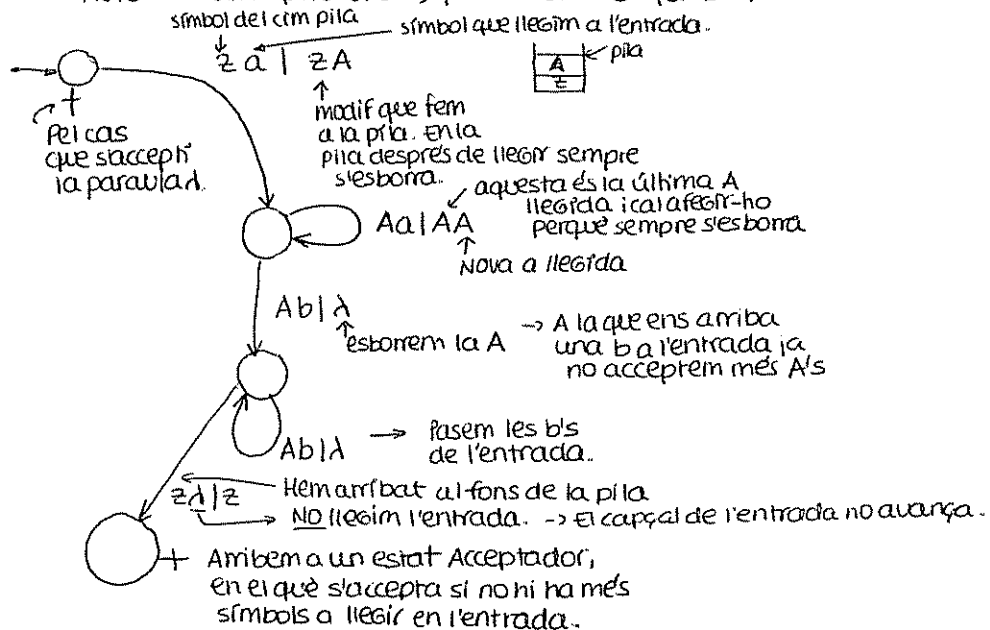 símbol del cim pila
símbol que llegim a l'entrada.
z a | zA
pila
A
z
+
Pel cas
que s'accepti
la paraula λ.
modif que fem
a la pila. En la
pila després de llegir sempre
s'esborra.
aquesta és la última A
llegida i cal afegir-ho
perquè sempre s'esborra
Aa|AA
Nova a llegida
Ab|λ
esborrem la A
-> A la que ens arriba
una b a l'entrada ja
no acceptem més A's
Ab|λ
→ Pasem les b's
de l'entrada.
zλ|z
Hem arribat al fons de la pila
NO llegim l'entrada. -> El capçal de l'entrada no avança.
+ Arribem a un estat Acceptador,
en el què s'accepta si no hi ha més
símbols a llegir en l'entrada.